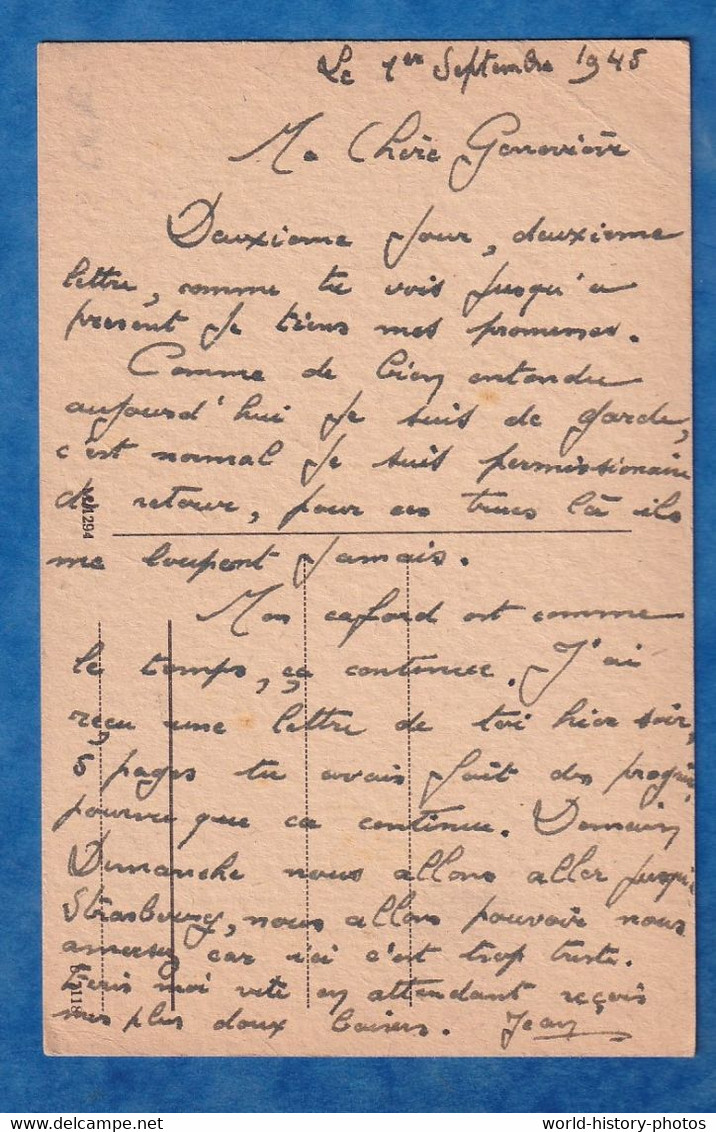 Le 1er Septembre 1945
Ma Chère Geneviève
Deuxieme jour, deuxieme
lettre, comme tu vois jusqu'a
present je tiens mes promesses.
Comme de bien entendu
aujourd'hui je suis de garde,
c'est normal je suis permissionaire
de retour, pour ces trucs là ils
me loupent jamais.
Mon cafard est comme
le temps, ça continue. J'ai
reçu une lettre de toi hier soir,
5 pages tu avais fait des progrès
pourvu que ca continue. Demain
Dimanche nous allons aller jusqu'a
Strasbourg, nous allons pouvoir nous
amuser car ici c'est trop triste.
Ecris moi vite en attendant reçois
mes plus doux baisers. Jean
1294
118
world-history-photos